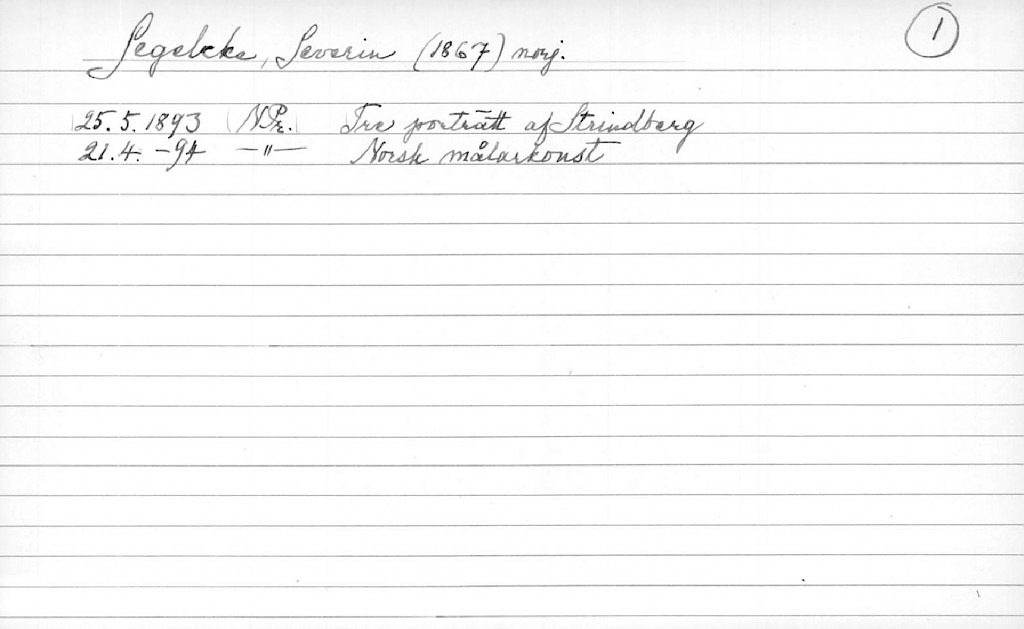 1
Segelcke, Severin (1867) norj.
25.5.1893 NPr. Tre porträtt af Strindberg
21.4. -94 -"- Norsk målarkonst